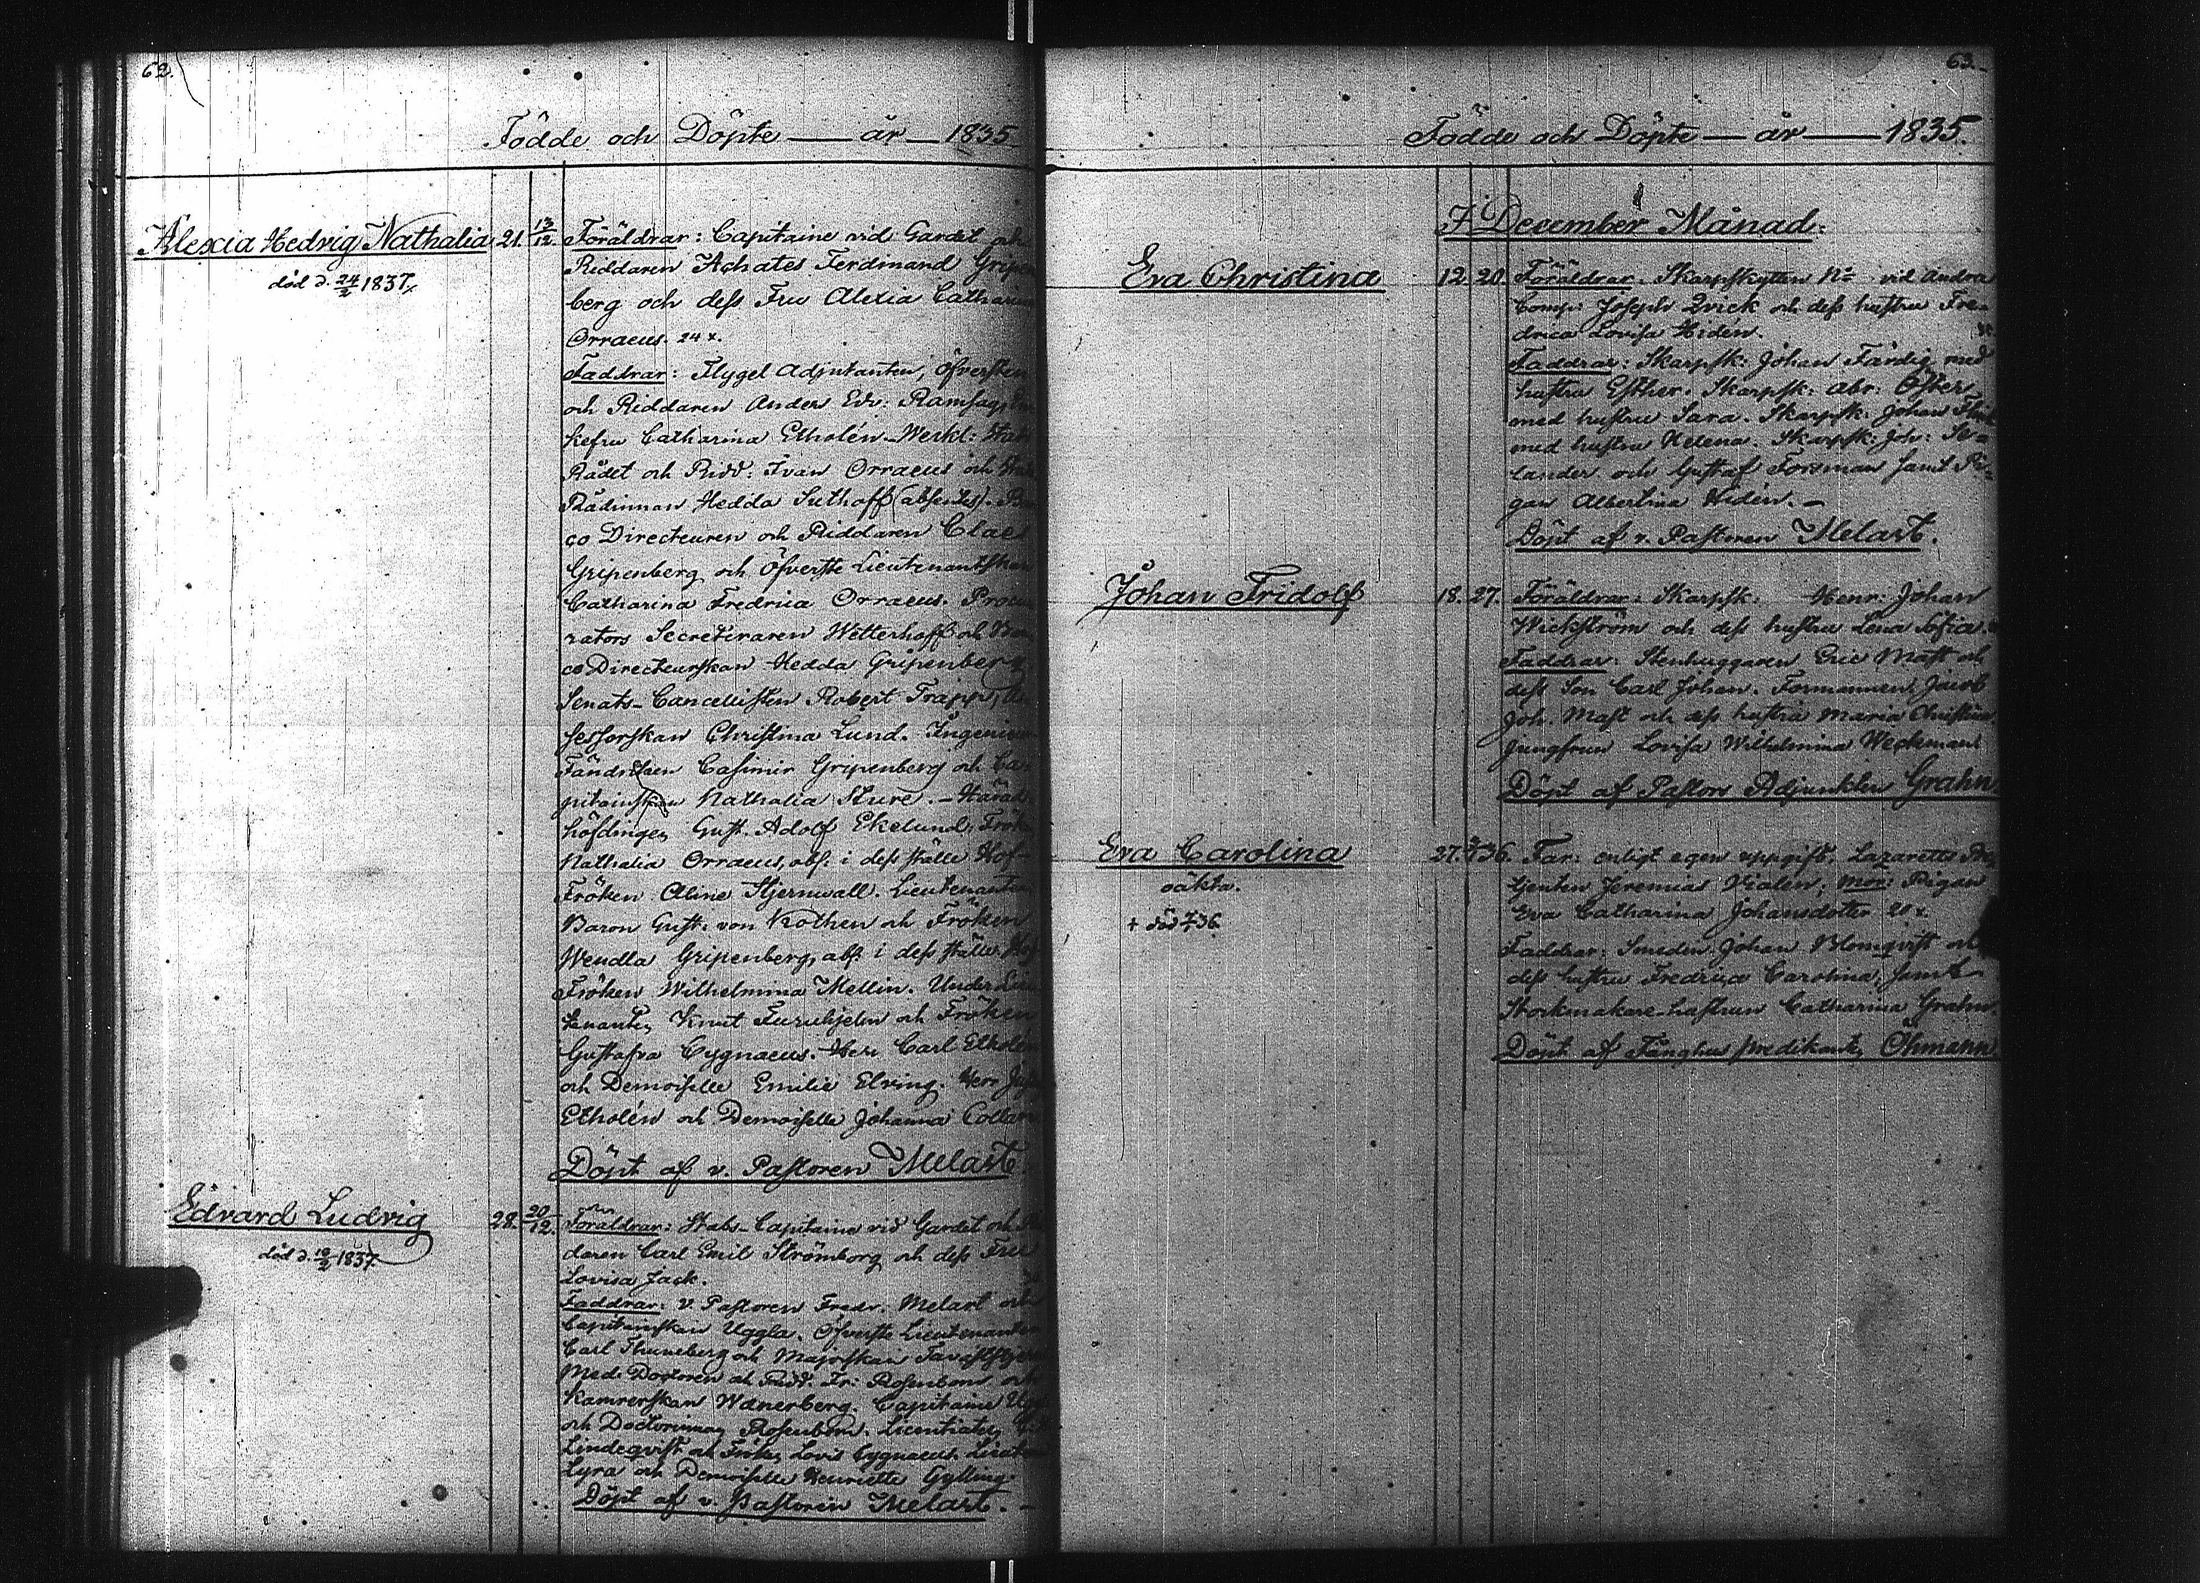 62.
Födde och Döpte — år — 1835
Alexia Hedvig Nathalia 21. 13/12. Föräldrar: Capitaine vid Gardet och
död d. 24/2 1837.
Riddaren Achates Ferdinand Gripen
berg och dess Fru Alexia Catharina
Orraeus. 24 x.
Faddrar: Flygel Adjutanten, Öfversten
och Riddaren Anders Edv: Ramsay,
kefru Catharina Etholén. Werkl: Stats
Rådet och Ridd: Ivan Orraeus och Stats
Rådinnan Hedda Suthoff (absentes).
co Directeuren och Riddaren Claes
Gripenberg och Öfverste Lieutenantskan
Catharina Fredrica Orraeus. Procu
rators Secreteraren Wetterhoff och Ban
co Directeurskan Hedda Gripenberg
Senats-Cancellisten Robert Trapp, As
sessorskan Christina Lund. Ingenieur
Fändriken Casimir Gripenberg och Ca
pitainskan Nathalia Sture. — Härads
höfdingen Gust. Adolf Ekelund, Frök
Nathalia Orraeus, abs. i dess ställe Hof-
Fröken Aline Stjernvall. Lieutenanten
Baron Gust: von Kothen och Fröken
Wendla Gripenberg, abs. i dess ställe Hof
Fröken Wilhelmina Mellin. Under Lieu
tenanten Knut Furuhjelm och Fröken
Gustafva Cygnaeus. Herr Carl Etholén
och Demoiselle Emilie Elving. Herr
Etholén och Demoiselle Johanna
Döpt af v. Pastoren Melart
Edvard Ludvig 28. 20/12. Föräldrar: Stabs-Capitaine vid Gardet och
död d. 10/2 1837.
daren Carl Emil Strömborg och dess Fru
Lovisa Jack.
Faddrar: v. Pastoren Fredr. Melart och
Capitainskan Uggla. Öfverste Lieutenanten
Carl Thuneberg och Majorskan
Med: Doctoren och Ridd: Fr: Rosenbom och
Kamrerskan Wanerberg. Capitaine
och Doctorinnan Rosenbom. Licentiaten
Lindeqvist och Frök: Lovis Cygnaeus.
Lyra och Demoiselle Henriette Gylling.
Döpt af v. Pastoren Melart. —
63.
Födde och Döpte — år — 1835.
I December Månad.
Eva Christina 12. 20. Föräldrar: Skarpskytten No vid Andra
Comp: Joseph Qvick och dess hustru Fre-
drica Lovisa Hidén.
Faddrar: Skarpsk: Johan Färdig med
hustru Esther. Skarpsk: Abr:
med hustru Sara. Skarpsk: Johan
med hustru Helena. Skarpsk: Joh:
lander och Gustaf Forsman samt Pi-
gan Albertina Hidén. —
Döpt af v. Pastoren Melart.
Johan Fridolf 18. 27. Föräldrar: Skarpsk: Henr: Johan
Wickström och dess hustru Lena Sofia.
Faddrar: Stenhuggaren Eric Mast och
dess Son Carl Johan. Formannen Jacob
Joh. Mast och dess hustru Maria Christina
Jungfrun Lovisa Wilhelmina Weckman
Döpt af Pastors Adjunkten Grahn
Eva Carolina 27. 36. Far: enligt egen uppgift. Lazaretts Be
oäkta.
tjenten Jeremias; Mor: Pigan
† död 36.
Eva Catharina Johansdotter 20 x.
Faddrar: Smeden Johan Blomqvist och
dess hustru Fredrica Carolina, samt
Skorkmakare-hustrun Catharina Grahn.
Döpt af Fånghus predikanten Öhmann